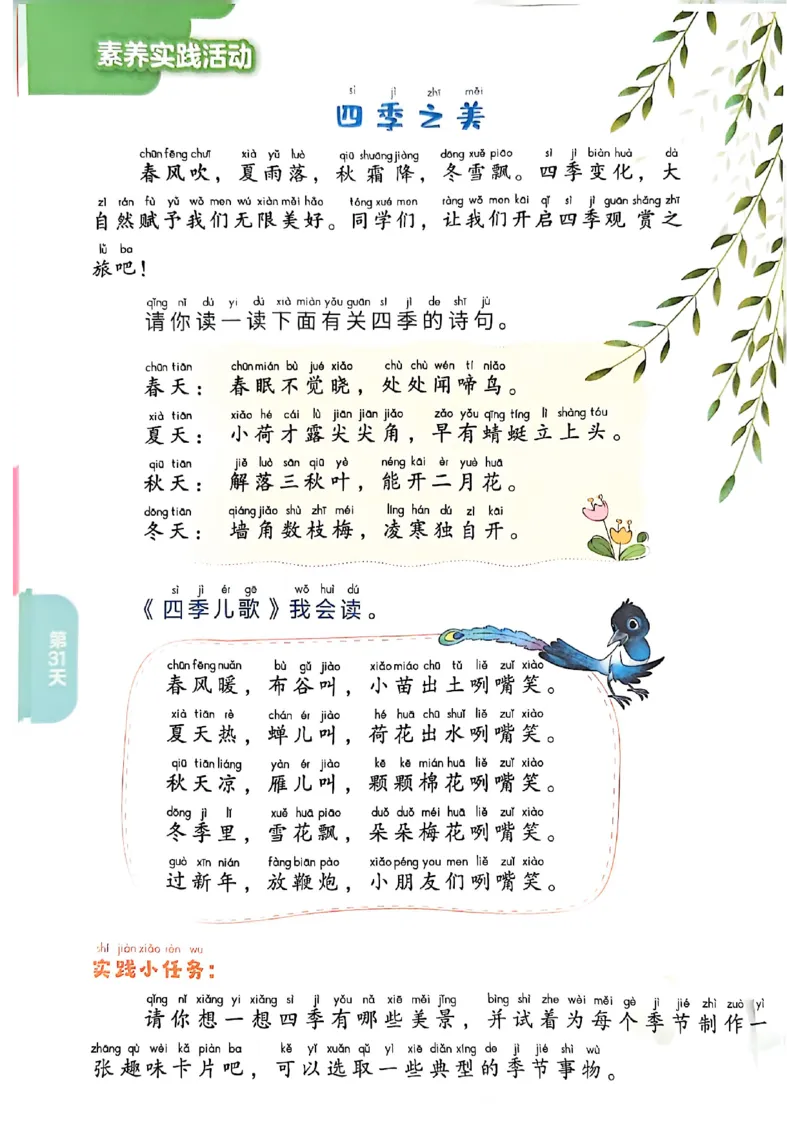 素养实践活动
sì jì zhī měi
四季之美
chūn fēng chuī xià yǔ luò qiū shuāng jiàng dōng xuě piāo sì jì biàn huà dà
春风吹，夏雨落，秋霜降，冬雪飘。四季变化，大
zì rán fù yǔ wǒ men wú xiàn měi hǎo tóng xué men ràng wǒ men kāi qǐ sì jì guān shǎng zhī
自然赋予我们无限美好。同学们，让我们开启四季观赏之
lǚ ba
旅吧！
qǐng nǐ dú yi dú xià miàn yǒu guān sì jì de shī jù
请你读一读下面有关四季的诗句。
chūn tiān chūn mián bù jué xiǎo chù chù wén tí niǎo
春天：春眠不觉晓，处处闻啼鸟。
xià tiān xiǎo hé cái lù jiān jiān jiǎo zǎo yǒu qīng tíng lì shàng tóu
夏天：小荷才露尖尖角，早有蜻蜓立上头。
qiū tiān jiě luò sān qiū yè néng kāi èr yuè huā
秋天：解落三秋叶，能开二月花。
dōng tiān qiáng jiǎo shù zhī méi líng hán dú zì kāi
冬天：墙角数枝梅，凌寒独自开。
sì jì ér gē wǒ huì dú
《四季儿歌》我会读。
chūn fēng nuǎn bù gǔ jiào xiǎo miáo chū tǔ liě zuǐ xiào
春风暖，布谷叫，小苗出土咧嘴笑。
xià tiān rè chán ér jiào hé huā chū shuǐ liě zuǐ xiào
夏天热，蝉儿叫，荷花出水咧嘴笑。
qiū tiān liáng yàn ér jiào kē kē mián huā liě zuǐ xiào
秋天凉，雁儿叫，颗颗棉花咧嘴笑。
dōng jì lǐ xuě huā piāo duǒ duǒ méi huā liě zuǐ xiào
冬季里，雪花飘，朵朵梅花咧嘴笑。
guò xīn nián fàng biān pào xiǎo péng you men liě zuǐ xiào
过新年，放鞭炮，小朋友们咧嘴笑。
第31天
shí jiàn xiǎo rèn wu
实践小任务：
qǐng nǐ xiǎng yi xiǎng sì jì yǒu nǎ xiē měi jǐng bìng shì zhe wèi měi gè jì jié zhì zuò yì
请你想一想四季有哪些美景，并试着为每个季节制作一
zhāng qù wèi kǎ piàn ba kě yǐ xuǎn qǔ yì xiē diǎn xíng de jì jié shì wù
张趣味卡片吧，可以选取一些典型的季节事物。